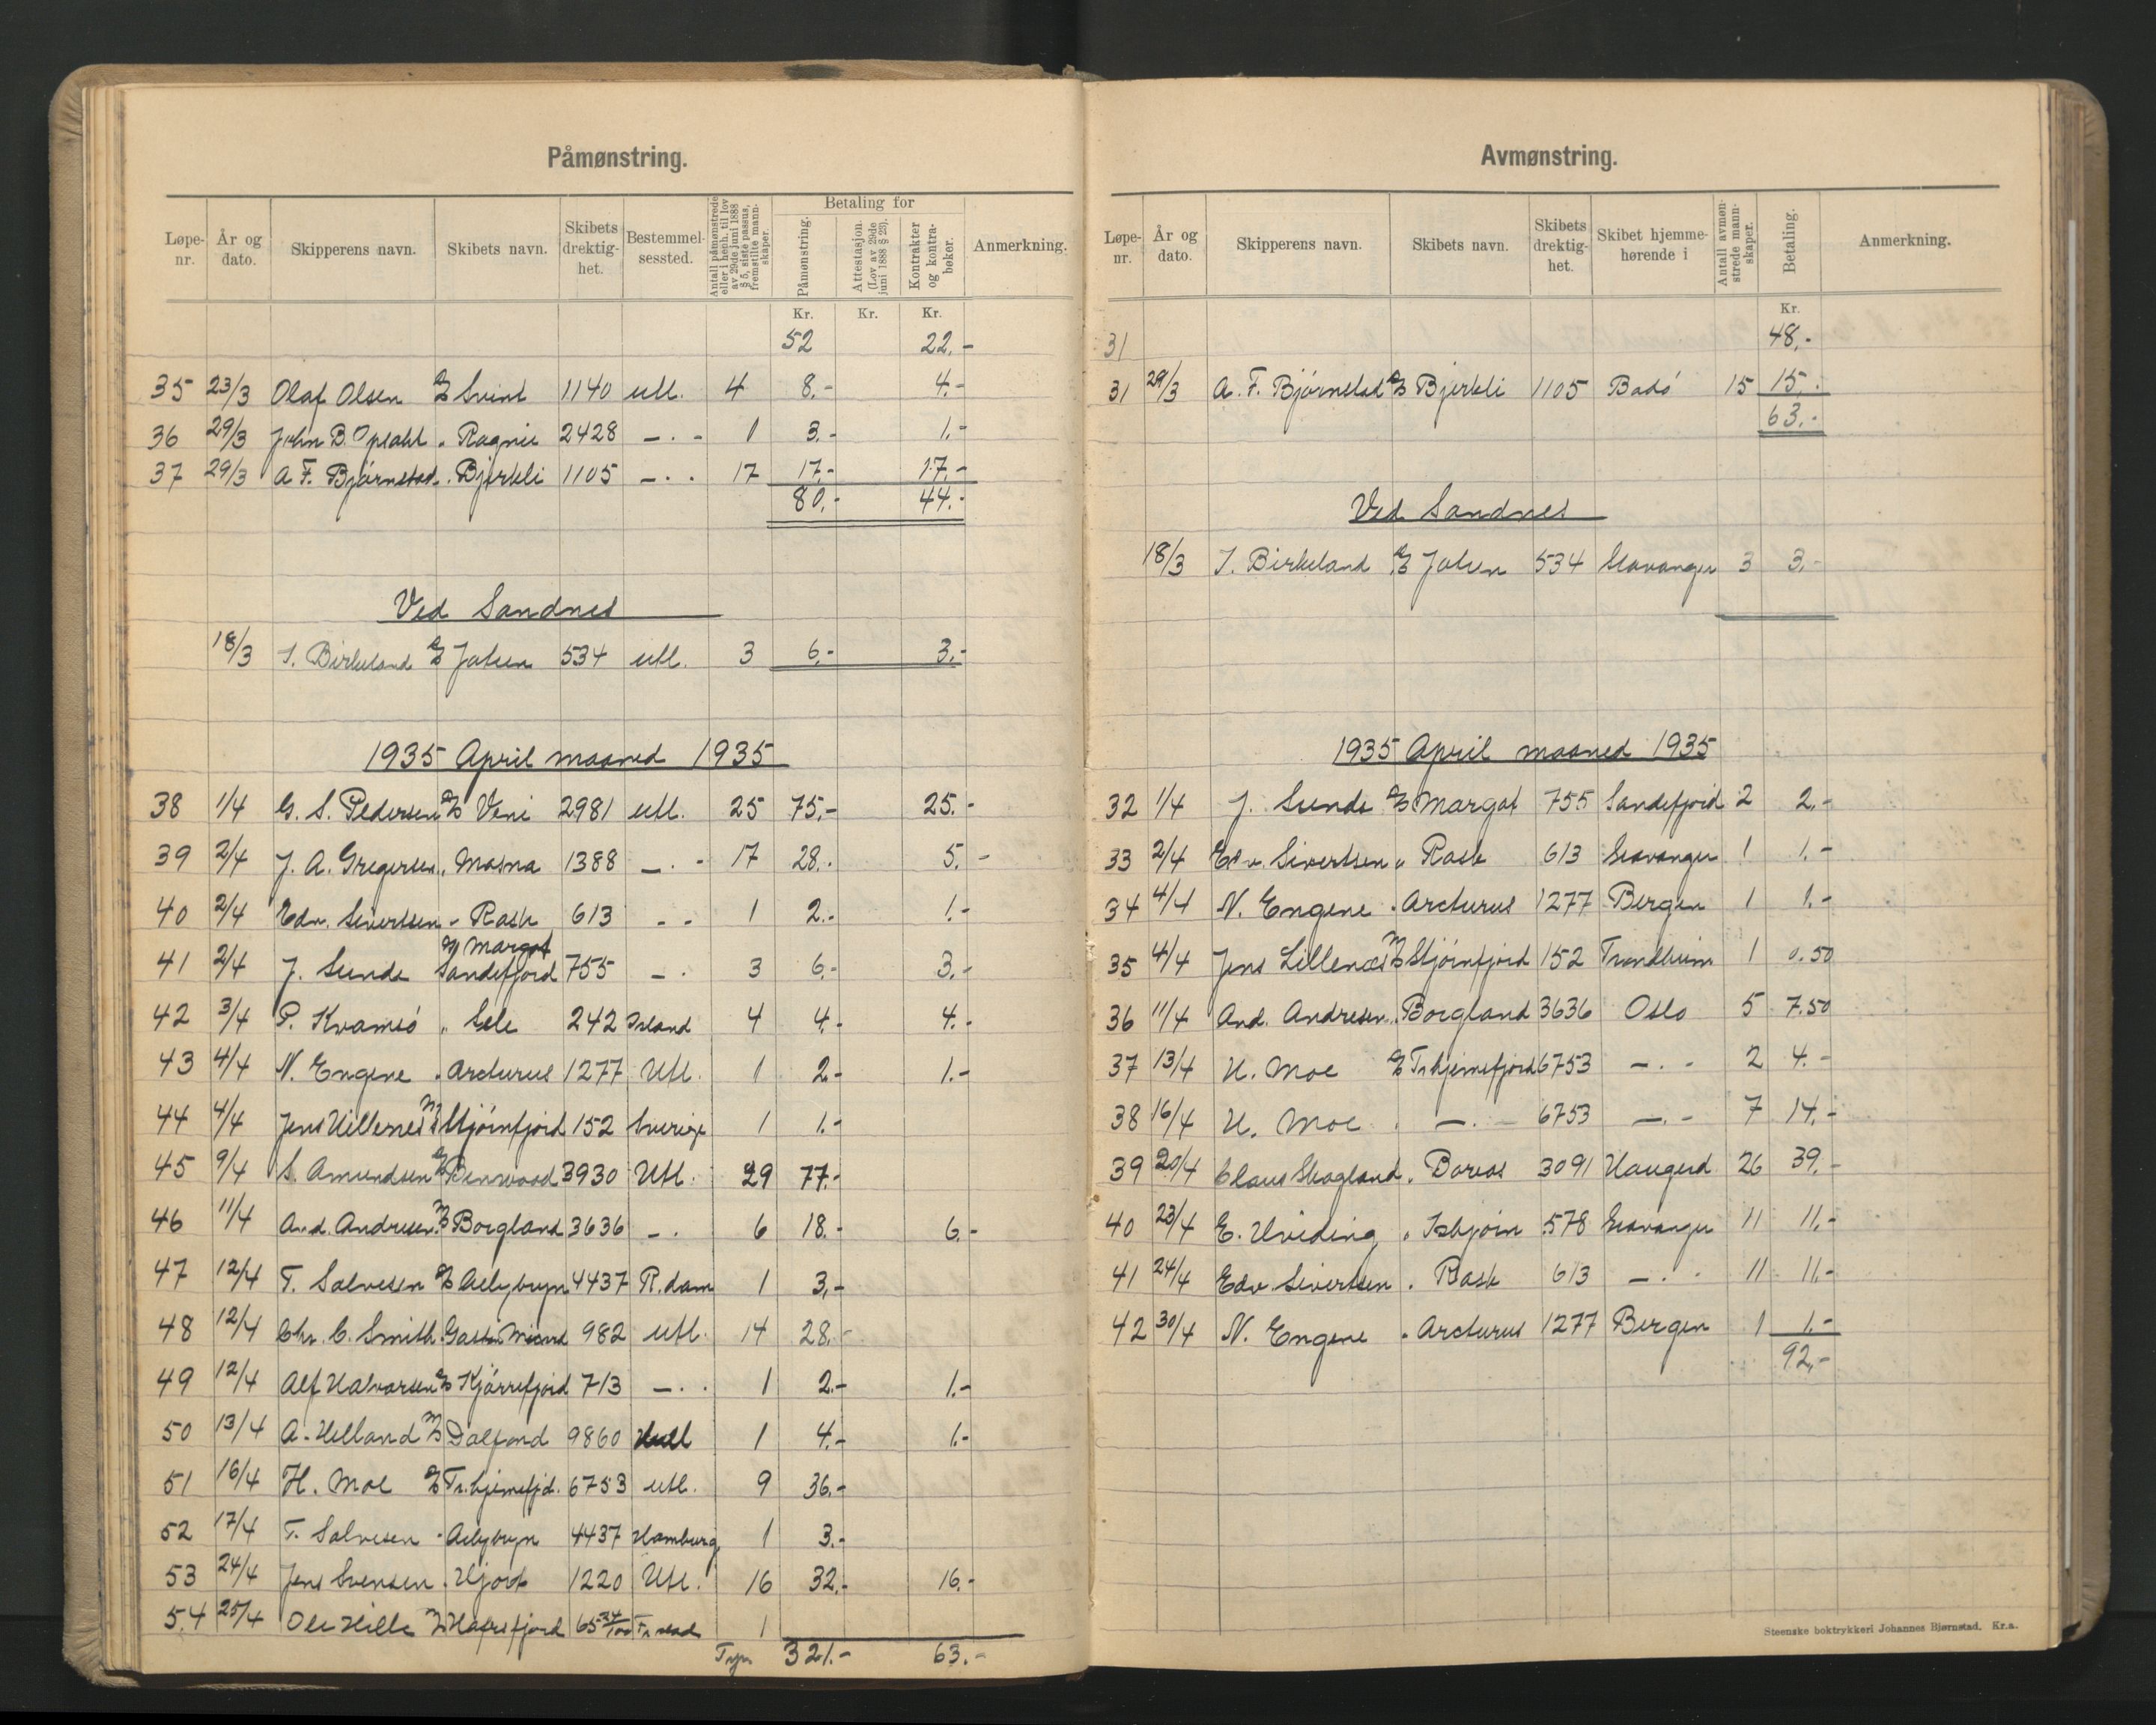 Påmønstring.
Løpe-nr. År og dato. Skipperens navn. Skibets navn. Skibets drektig-het. Bestemmel-sessted. Antall påmønstrede eller i henh. til lov av 29de juni 1888 § 5, siste passus, fremstilte mann-skaper. Betaling for Påmønstring. Attestasjon. (Lov av 29de juni 1888 § 25). Kontrakter og kontra-bøker. Anmerkning.
Kr. Kr. Kr.
52 22.-
35 23/3 Olaf Olsen D/S Svint 1140 utl. 4 8.- 4.-
36 29/3 John B. Opdahl " Ragnie 2428 -.- 1 3.- 1.-
37 29/3 A F. Bjørnstad " Bjerkli 1105 -.- 17 17.- 17.-
80.- 44.-
Ved Sandnes
18/3 I. Birkeland D/S Jolun 534 utl. 3 6.- 3.-
1935 April maaned 1935
38 1/4 G. S. Pedersen D/S Veni 2981 utl. 25 75.- 25.-
39 2/4 J. A. Gregersen " Mosna 1388 -.- 17 28.- 5.-
40 2/4 Edv. Sivertsen " Rask 613 -.- 1 2.- 1.-
41 2/4 J. Sunde D/S Margot Sandefjord 755 -.- 3 6.- 3.-
42 3/4 P. Kvamsö " Sele 242 Island 4 4.- 4.-
43 4/4 N. Engene " Arcturus 1277 Utl. 1 2.- 1.-
44 4/4 Jens Lillenes M/S Stjörnfjord 152 Sverige 1 1.-
45 9/4 S. Amundsen D/S Benwood 3930 Utl. 29 77.-
46 11/4 And. Andresen M/S Borgland 3636 -.- 6 18.- 6.-
47 12/4 T. Salvesen D/S Aelybryn 4437 R.dam 1 3.-
48 12/4 Chr. C. Smith " Gaston Micard 982 utl. 14 28.-
49 12/4 Alf Halvorsen D/S Kjörrefjord 713 -.- 1 2.- 1.-
50 13/4 A. Helland M/S Dalfond 9860 Hull 1 4.- 1.-
51 16/4 H. Moe D/S Tr.hjemsfjd. 6753 utl. 9 36.-
52 17/4 T. Salvesen " Aelybryn 4437 Hamburg 1 3.-
53 24/4 Jens Svensen " Hjort 1220 Utl. 16 32.- 16.-
54 25/4 Ole Hille M/S Hafrsfjord 65 24/100 1
321.- 63.-
Avmønstring.
Løpe-nr. År og dato. Skipperens navn. Skibets navn. Skibets drektig-het. Skibet hjemme-hørende i Antall avmøn-strede mann-skaper. Betaling. Anmerkning.
Kr.
31 48.-
31 29/3 A. F. Bjørnstad D/S Bjerkli 1105 Bodö 15 15.-
63.-
Ved Sandnes
18/3 I. Birkeland D/S Jolun 534 Stavanger 3 3.-
1935 April maaned 1935
32 1/4 J. Sunde D/S Margot 755 Sandefjord 2 2.-
33 2/4 Edv. Sivertsen " Rask 613 Stavanger 1 1.-
34 4/4 N. Engene " Arcturus 1277 Bergen 1 1.-
35 4/4 Jens Lillenæs M/S Stjörnfjord 152 Trondheim 1 0.50
36 11/4 And. Andresen " Borgland 3636 Oslo 5 7.50
37 13/4 H. Moe D/S Tr.hjemsfjord 6753 -.- 2 4.-
38 16/4 H. Moe -.- 6753 -.- 7 14.-
39 20/4 Claus Skogland " Borvas 3091 Haugesd 26 39.-
40 23/4 E. Hviding " Isbjörn 578 Stavanger 11 11.-
41 24/4 Edv. Sivertsen " Rask 613 -.- 11 11.-
42 30/4 N. Engene " Arcturus 1277 Bergen 1 1.-
92.-
Steenske boktrykkeri Johannes Bjørnstad. Kr.a.